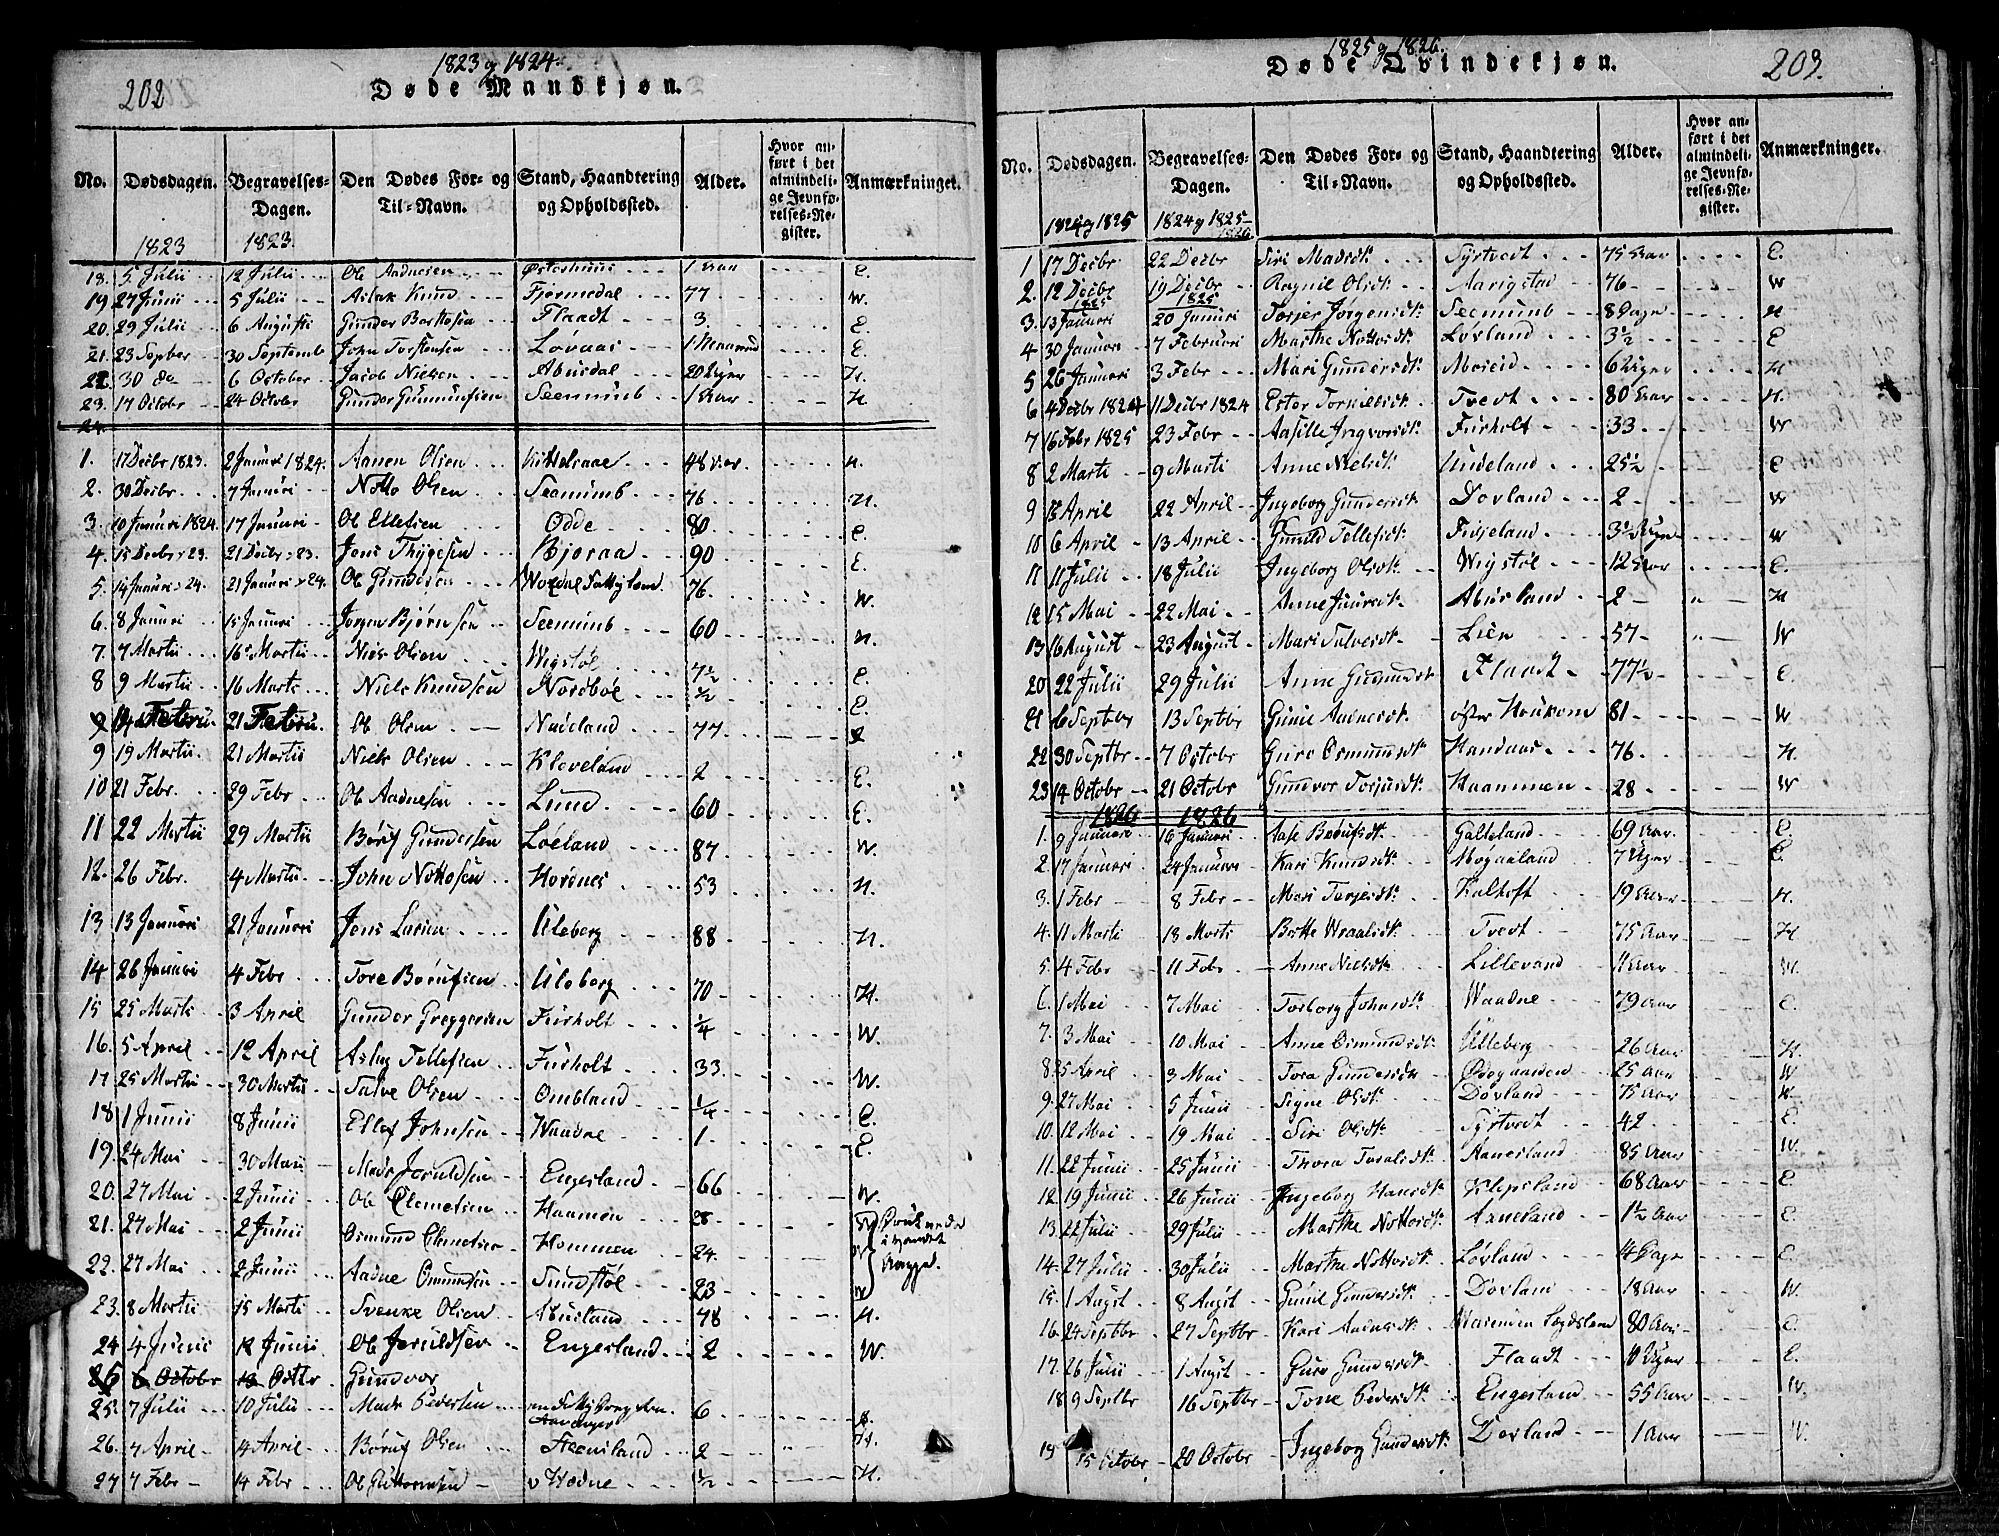 202
1823 og 1824.
Døde Mandkjøn.
No. Dødsdagen. Begravelses-Dagen. Den Dødes For- og Til-Navn. Stand, Haandtering og Opholdssted. Alder. Hvor anført i det almindelige Jevnførelses-Register. Anmærkninger.
1823 1823
18. 5 Julii 12 Julii Ole Aadnesen 1 Aar E.
19 27 Junii 5 Julii Aslak Knud Fjermedal 77 W.
20. 29 Julii 6 Augusti Gunder Flaadt 3. E.
21. 23 Septber 30 Septemb John Torstensen Løvaas 1 Maaned E.
22. 30 do 6 October Jacob Nielsen Abusdal 20 Uger H.
23. 17 Octobr 24 Octobr Gunder Gunmundsen Seemunb 1 Aar H
24.
1. 17 Decbr 1823. 2 Januri 1824. Aanen Olsen 48 Aar H.
2. 30 Decbr 7 Januri Notto Olsen Seemunb 76 H.
3. 10 Januri 1824. 17 Januri Ole Ellefsen Odde 80 E.
4. 15 Decbr 23. 21 Decbr 23. Jens Thygesen Bjoraa 90 E.
5. 14 Januri 24. 21 Januri 24. Ole Gundersen 76. W.
6. 8 Januri 15 Januri Jørgen Bjørnsen Seemunb 60 H.
7. 7 Martii 16 Martii Niels Olsen Wigstøl 7½
8 9 Martii 16 Marts Niels Knudsen Nordbøe ½ E.
9 14 Febru. 21 Febru. Ole Olsen Nadeland 77 E
9 19 Martii 21 Martii Niels Olsen Kleveland 2 E.
10 21 Febr. 29 Febr Ole Aadnesen Lund 60 E.
11 22 Martii 29 Martii Børuf Gundersen Løeland 87 W.
12. 26 Febr. 4 Martii John Nottosen Hordnes 53 H.
13 13 Januari 21 Januari Jens Larsen Uleberg 88 H.
14 26 Januari 4 Febr Tore Børufsen Uleberg 70 H.
15 25 Marts 3 April Gunder Greggersen Furholt ¼ W.
16. 5 April 12 April Aslag Tellefsen Furholt 33. W.
17 25 Martii 30 Martii Salve Olsen Ombland ¼ E.
18 1 Junii 8 Junii Ellef Johnsen Waadne 1. E.
19. 24 Mai 30 Maii Mads Jeruldsen Engesland 66 W.
20. 27 Mai 2 Junii Ole Clemetsen Haamen 28
21. 27 Mai 2 Junii Osmund Clemetsen Hommen 24.
22. 27 Mai 2 Junii Aadne Osmundsen Sundstøl 23 W
23. 8 Martii 15 Marti Svenke Olsen Abusland 78 H.
24 4 Junii 12 Junii Ole Jeruldsen Engesland 2 W.
25 6 Octobr 13 Octbr Gundvor
25. 7 Julii 10 Julii Mads Pedersen 6
26. 7 April 14 April Børuf Olsen 2 H.
27 7 Febr 14 Febr Ole Guttormsen v Hødne ½ H.
1825 og 1826.
Døde Qvindekjøn.
203.
No. Dødsdagen. Begravelses-Dagen. Den Dødes For- og Til-Navn. Stand, Haandtering og Opholdssted. Alder. Hvor anført i det almindelige Jevnførelses-Register. Anmærkninger.
1824 og 1825 1824 og 1825 1826
1 17 Decbr 22 Decbr Siri Madsdt. Tyrtvedt 75 Aar E.
2. 12 Decbr 19 Decbr Ragnil Olsdt. Aarigstad 76 W
1825 1825
3. 13 Januri 20 Januri Torjer Jørgensdt. Seemunb 8 Dage H
4 30 Januri 7 Februri Marthe Nottosdt. Løvland 3½ E
5 26 Januri 3 Febr Mari Gundersdt. Moseid 6 Uger H
6 4 Decbr 1824 11 Decbr 1824 Ester Torkilsdt. Tvedt 80 Aar H.
7 16 Febr 1825 23 Febr Aasille Ingvorsdt. Furholt 33. W
8 2 Marti 9 Marti Anne Nielsdt. Undeland 25½ E
9 April 22 April Ingeborg Gundersdt. Dovland 2 W
10 6 April 13 April Gunild Tellefsdt. Frigeland 3½ Uger W
11 11 Julii 18 Julii Ingeborg Olsdt. Wigstøl 12 Aar E.
12 15 Mai 22 Mai Anne Abusland 2 H
13 16 August 23 August Mari Salvesdt. Lien 57 W
20 22 Julii 29 Julii Anne Gunmunsdt Flaadt 77½ E.
21 6 Septbr 13 Septbr Gunil Aadnesdt. øster Houkom 81 W
22 30 Septbr 7 Octobr Guro Osmunsdt. Handaas 76 H.
23 14 Octobr 21 Octobr Gundvor Torjusdt. Haammen 28 W
1826 1826
1. 9 Januri 16 Januri Aase Børufsdt. Galteland 69 Aar E.
2. 17 Januri 24 Januri Kari Knudsdt. Mogaaland 7 Uger E.
3. 1 Febr 8 Febr Mari Terjesdt. Kalhoft 19 Aar H.
4. 11 Marti 18 Marti Birthe Wraalsdt. Tvedt 75 Aar H
5. 4 Febr 11 Febr Anne Nielsdt. Lillesand 11 Aar W.
6. 1 Mai 7 Mai Torborg Johnsdt. Waadne 79 Aar E.
7. 3 Mai 10 Mai Anne Osmundsdt. Uleberg 26 Aar H.
8. 25 April 3 Mai Tora Gundersdt. Ødegaarden 25 Aar W
9. 27 Mai 5 Junii Signe Olsdt. Dovland 75 Aar W
10. 12 Mai 19 Mai Siri Olsdt. Tyrtvedt 42 E.
11. 22 Junii 25 Junii Thora Taraldsdt. Hanesland 85 Aar W.
12 19 Junii 26 Junii Ingeborg Hansdt. Klepsland 68 Aar E.
13. 22 Julii 29 Julii Marthe Nottosdt. Aaneland 1½ Aar E.
14. 27 Julii 30 Julii Marthe Nottosdt. Løvland 14 Dage E.
15. 1 Augst 8 Augst Gunil Gundersdt. Dovland 18 Aar W.
16. 24 Septbr 27 Septbr Kari Aadnesdt. 80 Aar E.
17. 26 Julii 1 Augst Guro Gundersdt. Flaadt 10 Uger E.
18 9 Septbr 16 Septbr Tone Pedersdt. Engesland 55 Aar W.
19 15 Octobr 20 Octobr Ingeborg Gundersdt. Dovland 1 Aar W.